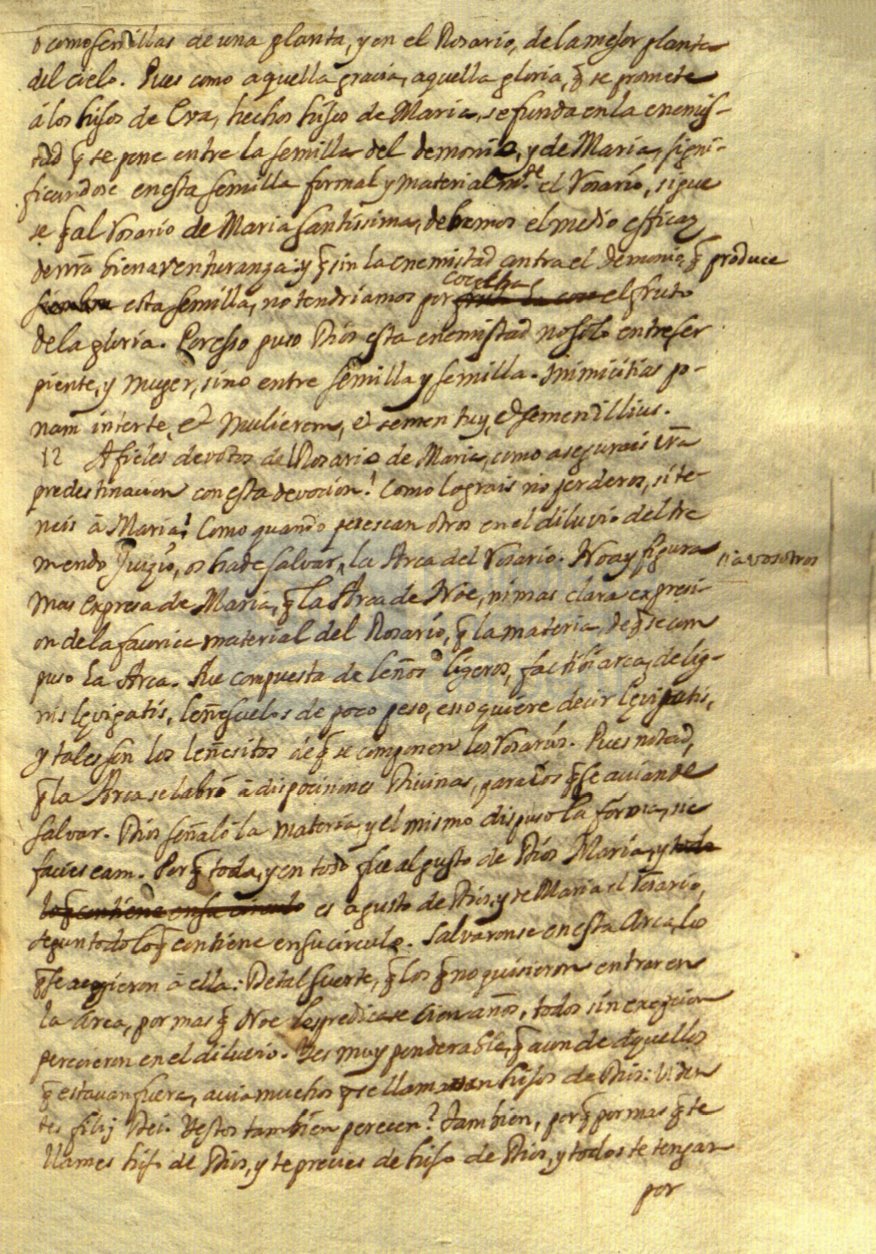 o como semillas de una planta, y en el Rosario, de la mejor planta
del cielo. Pues como aquella gracia, aquella gloria, q̃ se promete
á los hijos de Eva, hechos hijos de Maria, se funda en la enemis-
tad q̃ se pone entre la semilla del demonio, y de Maria, signi-
ficandose en esta semilla formal y material mᵗᵉ el Rosario, sigue
se q̃ al Rosario de Maria Santissima, debemos el medio efficaz
de nrã bienaventuranza: y q̃ sin la enemistad contra el demonio q̃ produce
siembra esta semilla, no tendriamos por cocecha el fruto
de la gloria. Por esso puso Dios esta enemistad no solo entre ser
piente, y muger, sino entre semilla y semilla. Inimicitias po-
nam inter te, et mulierem, et semen tuũ, et semen illius.
12 A fieles devotos del Rosario de Maria, como asegurais vrã
predestinacion con esta devocion! Como lograis no perderos, si te-
neis á Maria! Como quando perescan otros en el diluvio del tre
mendo Juizio, os ha de salvar, la Arca del Rosario. No ay figura
a vosotros
mas expresa de Maria, q̃ la Arca de Noe, ni mas clara expresi-
on de la fabrica material del Rosario, q̃ la materia de q̃ se com
puso la Arca. Fue compuesta de leños ligeros, factibi arca, de lig-
nis lęvigatis, leñesuelos de poco peso, esso quiere decir lęvigatis,
y tales son los leñesitos de q̃ se componen los Rosarios. Pues notad,
q̃ la Arca se labró á disposiciones Divinas, para los q̃ se avian de
salvar. Dios señaló la materia, y el mismo dispuso la forma, sic
facies eam. Por q̃ toda, y en todo fue al gusto de Dios Maria, y todo
lo q̃ contiene en su circulo es agusto de Dios, y de Maria el Rosario,
segun todo lo q̃ contiene en su circulo. Salvaronse en esta Arca, los
q̃ se acogieron á ella: De tal suerte, q̃ los q̃ no quisieron entrar en
la Arca, por mas q̃ Noe les predicase cien años, todos sin excepcion
perecieron en el diluvio. Y es muy ponderable, q̃ aun de aquellos
q̃ estavan fuera, avia muchos q̃ se llamavan hijos de Dios: Viden
tes filij Dei. Y estos tambien perecen? Tambien, por q̃ por mas q̃ te
llames hijo de Dios, y te precies de hijo de Dios, y todos te tengan
por